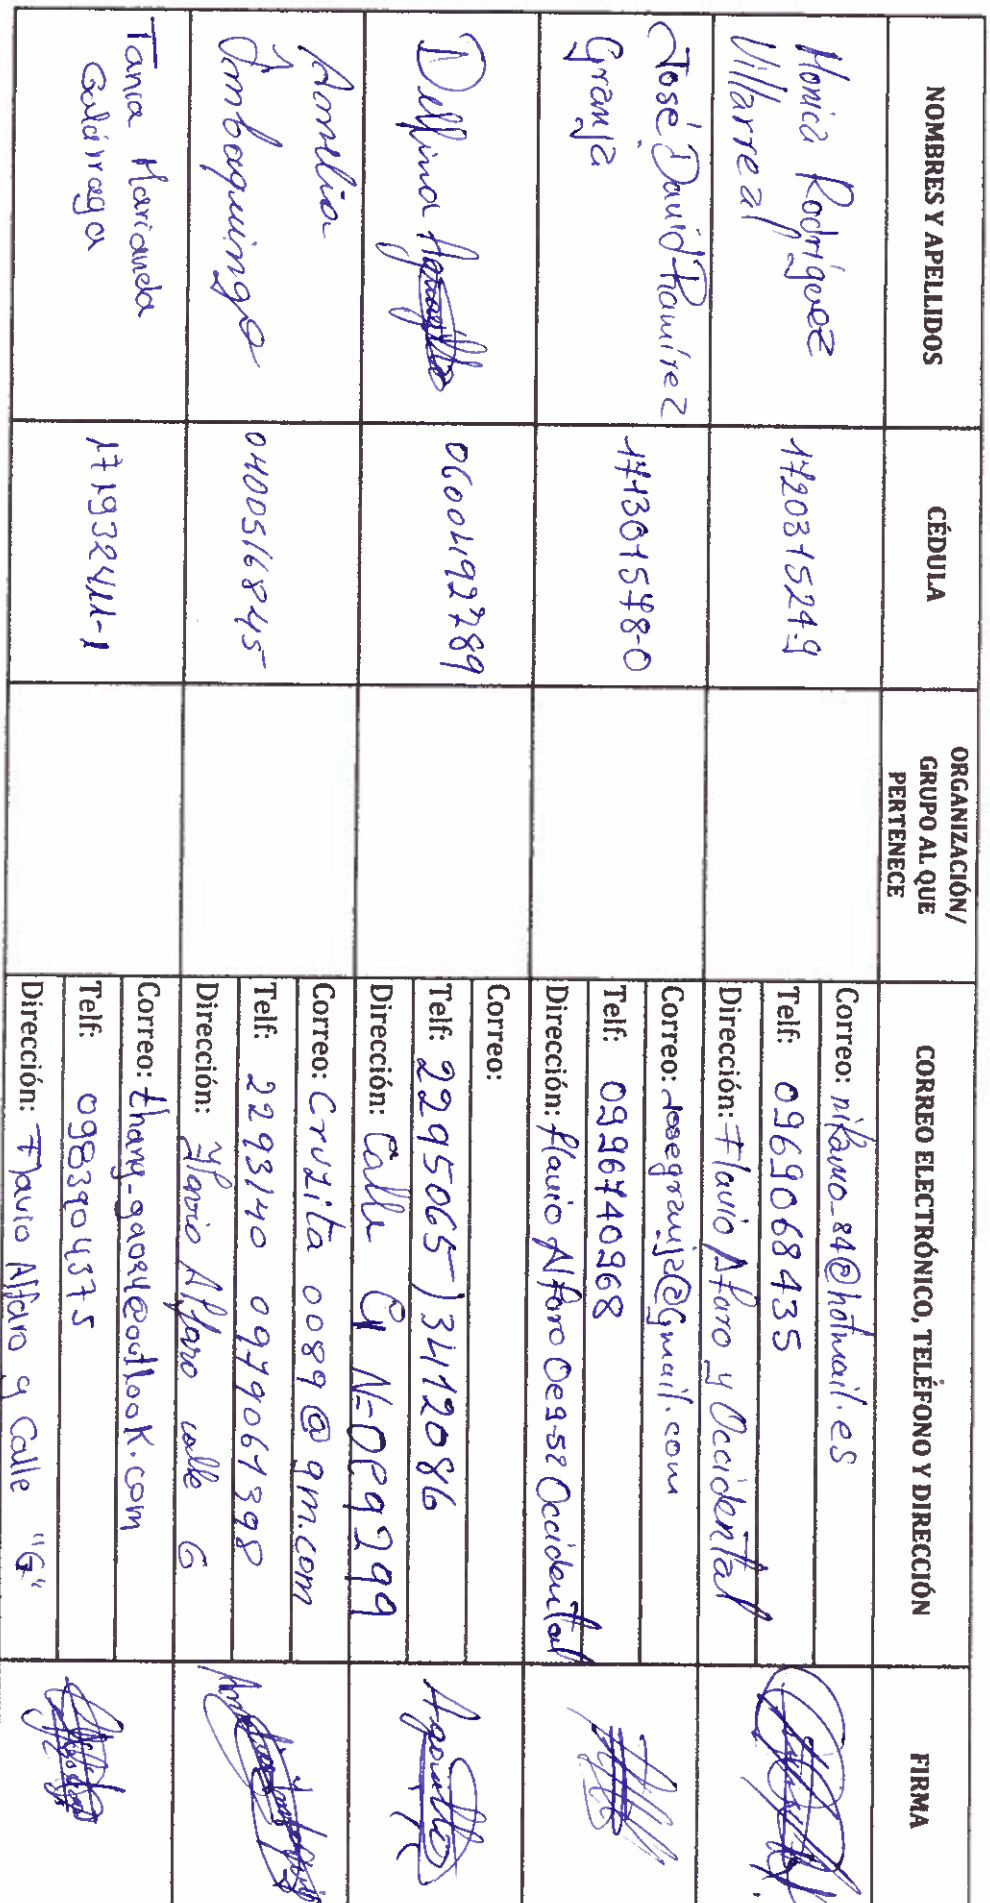 NOMBRES Y APELLIDOS
CÉDULA
ORGANIZACIÓN/
GRUPO AL QUE
PERTENECE
CORREO ELECTRÓNICO, TELÉFONO Y DIRECCIÓN
FIRMA
Monica Rodríguez
Villarreal
172031524-9
Correo: nikamo_84@hotmail.es
Telf: 0969068435
Dirección: Flavio Alfaro y Occidental
José David Ramírez
Granja
171301548-0
Correo: Josegranja@Gmail.com
Telf: 0996740968
Dirección: flavio Alfaro Oe9-52 Occidental
Delfina
0600492789
Correo:
Telf: 2295065 / 3412086
Dirección: Calle G N-Oe9299
Amelia
Imbaquingo
0400516845
Correo: Cruzita 0089@gm.com
Telf: 2293140 0979061398
Dirección: Flavio Alfaro calle G
Tania Marianela
Galárraga
171932411-1
Correo: thany-gao84@outlook.com
Telf: 0983904375
Dirección: Flavio Alfaro y Calle "G"